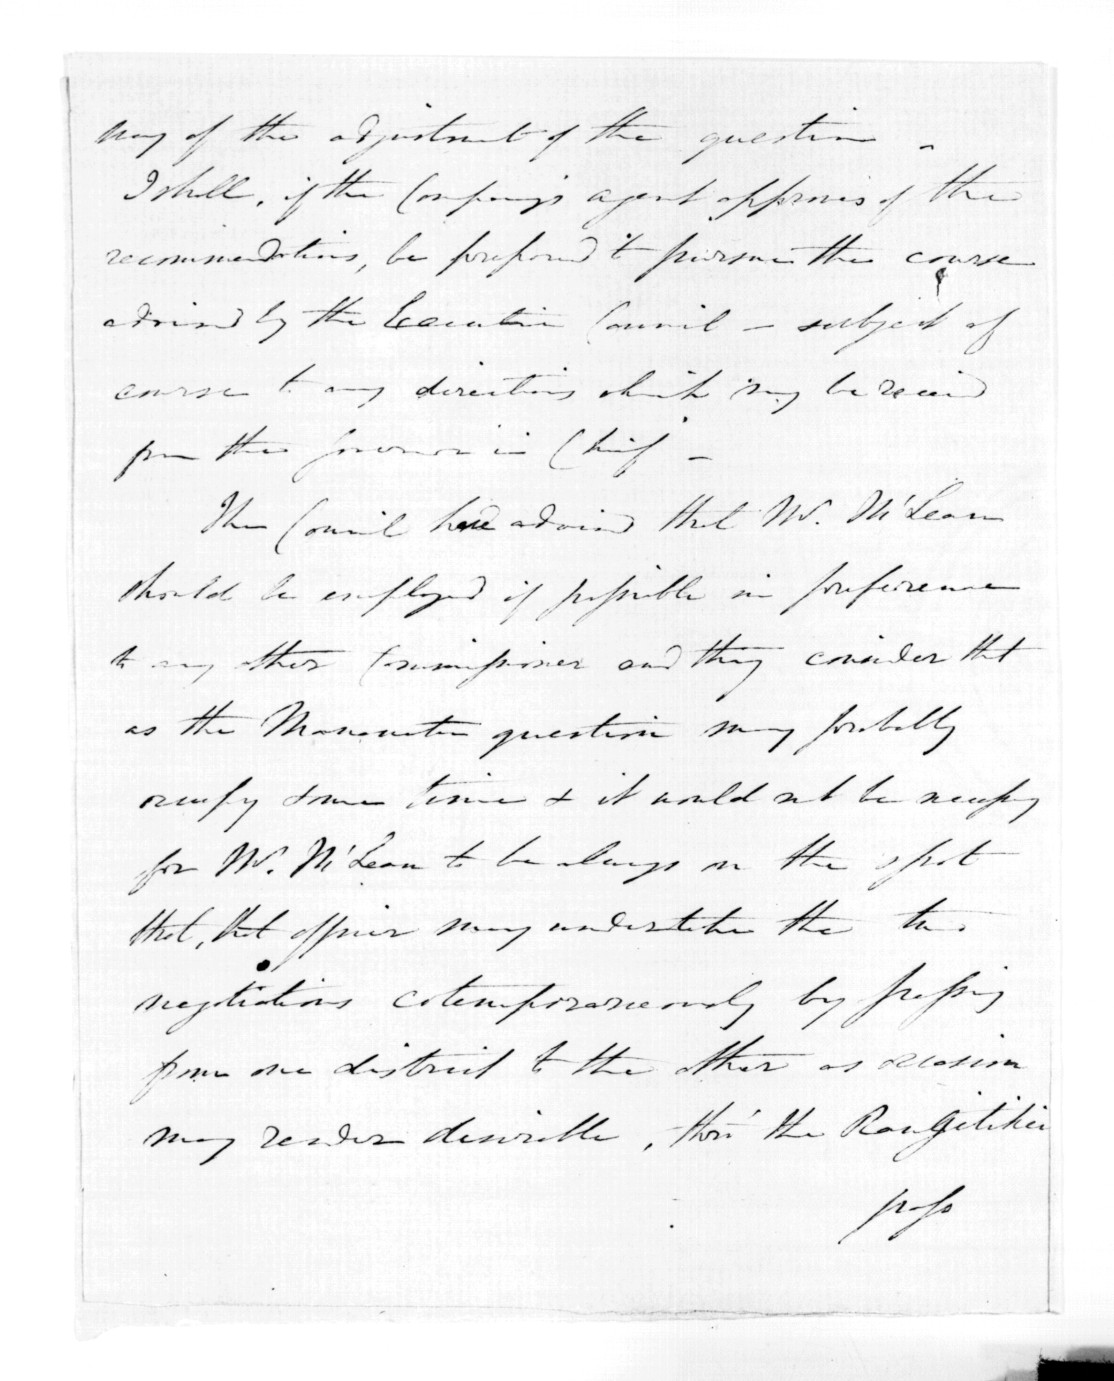 way of the adjustment of the question –
I shall, if the Company's agent approves of the
recommendations, be prepared to pursue the course
advised by the Executive Council – subject of
course to any directions which may be received
from the Governor in Chief –
The Council have advised that Mr. McLean
should be employed if possible in preference
to any other Commissioner and they consider that
as the Manawatu question may probably
occupy some time & it would not be necessary
for Mr. McLean to be always on the spot
that, that officer may undertake the two
negotiations cotemporaneously by passing
from one district to the other as occasion
may render desirable, tho' the Rangitikei